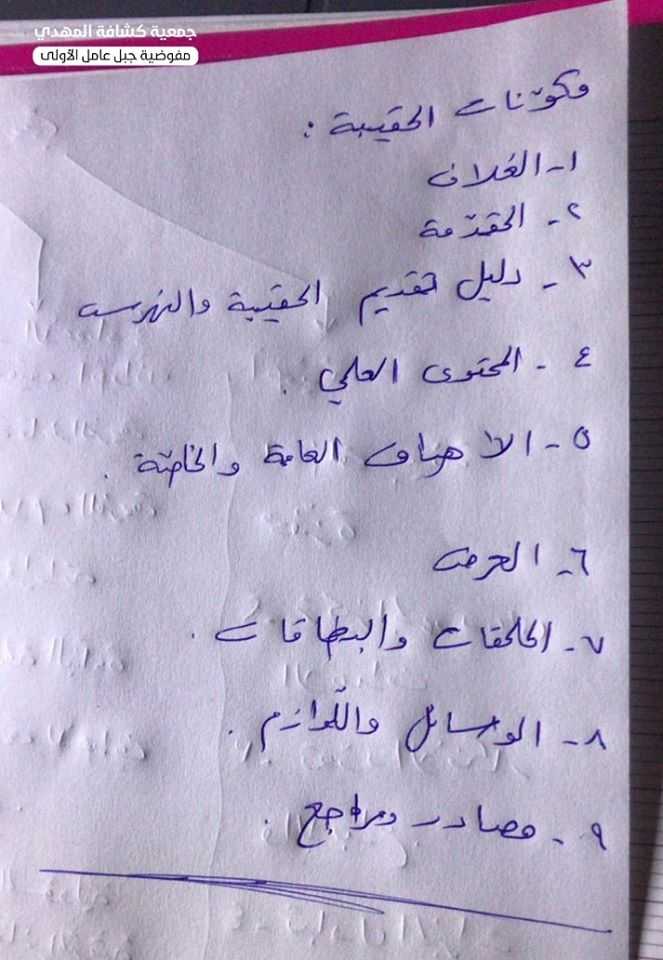 جمعية كشافة المهدي
مفوضية جبل عامل الأولى
مكوّنات الحقيبة :
١- الغلاف
٢- المقدّمة
٣- دليل تقديم الحقيبة والفهرس
٤- المحتوى العلمي .
٥- الأهداف العامة والخاصّة .
٦- العرض
٧- الملحقات والبطاقات .
٨- الوسائل واللّوازم .
٩- مصادر ومراجع .